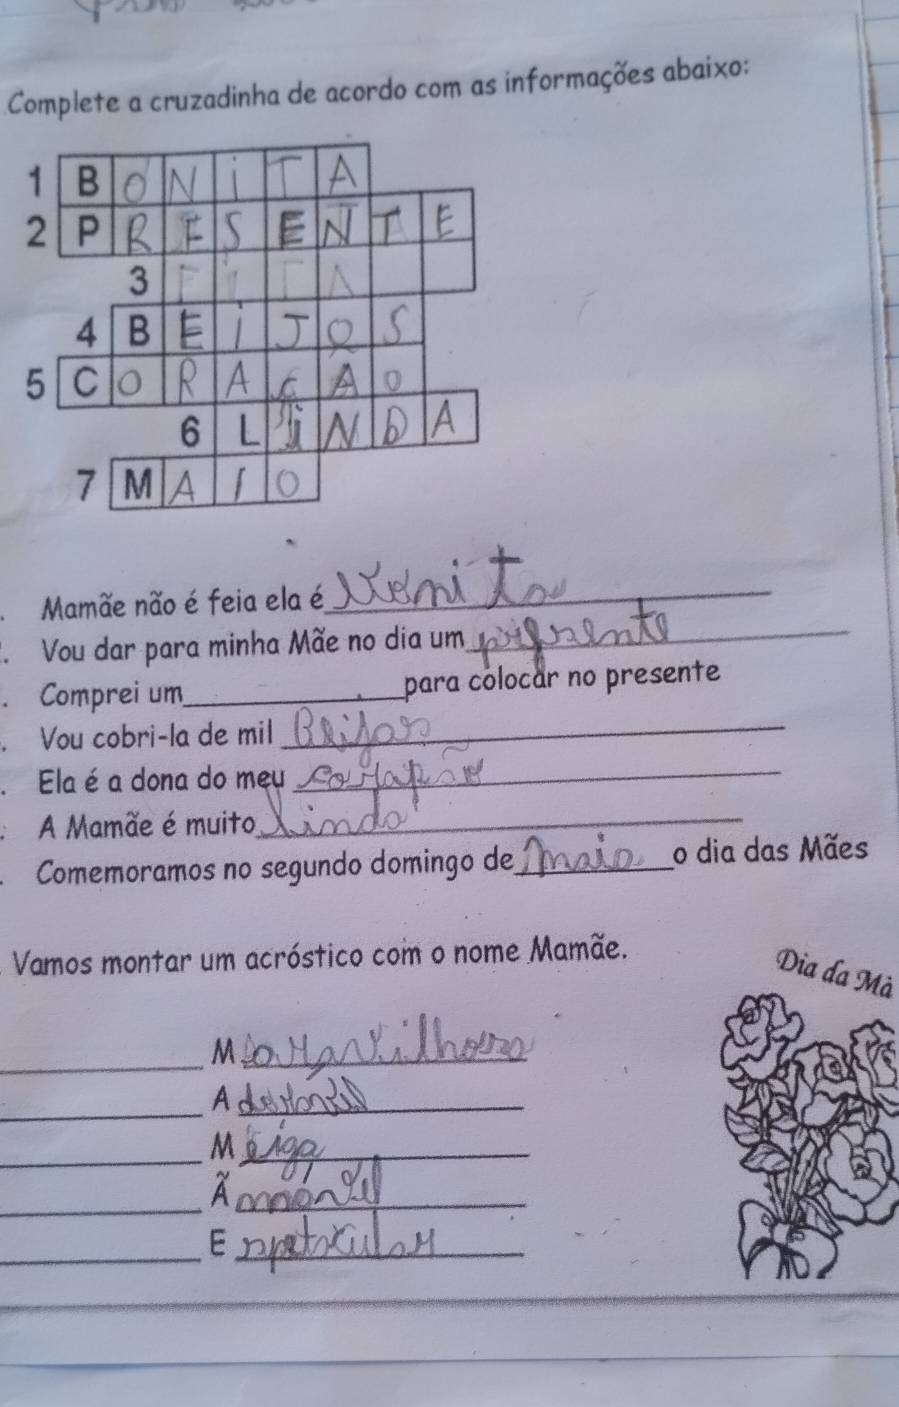 Complete a cruzadinha de acordo com as informações abaixo:
1 BONITA
2 PRESENTE
3 FITA
4 BEIJOS
5 CORAÇÃO
6 LINDA
7 MAIO
. Mamãe não é feia ela é
. Vou dar para minha Mãe no dia um presente
. Comprei um para colocar no presente
. Vou cobri-la de mil Beijos
. Ela é a dona do meu
. A Mamãe é muito linda
. Comemoramos no segundo domingo de maio o dia das Mães
Vamos montar um acróstico com o nome Mamãe.
Dia da Mã
M
A
Meiga
Ã
E